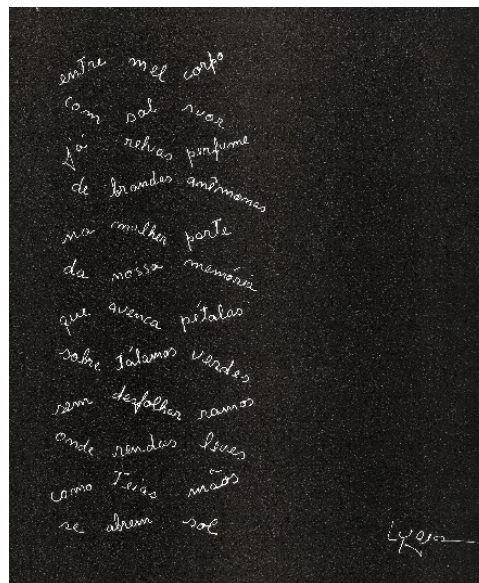 entre mel corpo
com sal suor
já relvas perfume
de brandas anêmonas
na mulher parte
da nossa memória
que avenca pétalas
sobre tálamos verdes
sem desfolhar ramos
onde rendas leves
como Teias mãos
se abrem sol